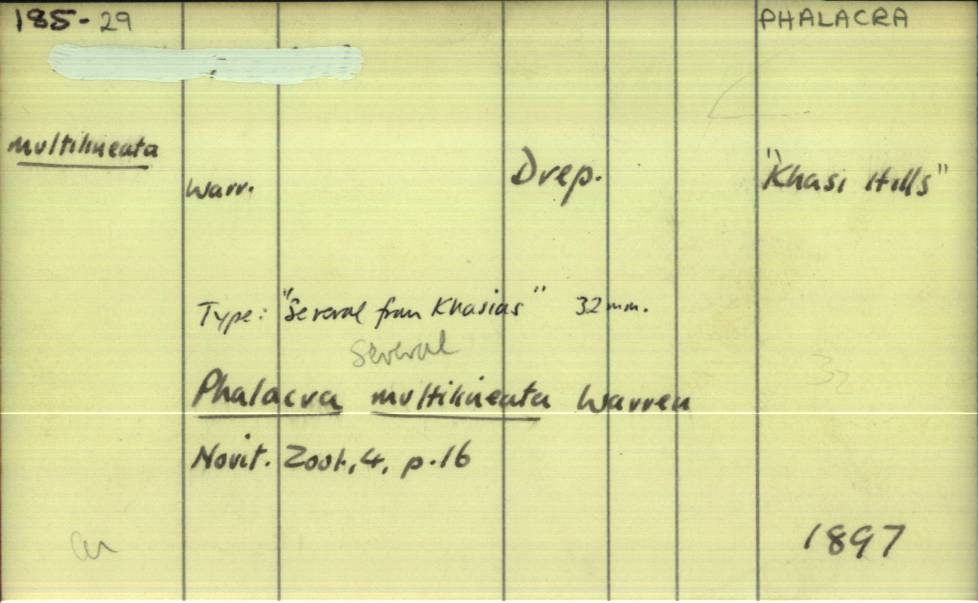 185-29 PHALACRA
multilineata
Warr. Drep. "Khasi Hills"
Type: "Several from Khasias" 32 mm.
Several
Phalacra multilineata Warren
Novit. Zool., 4, p.16
1897